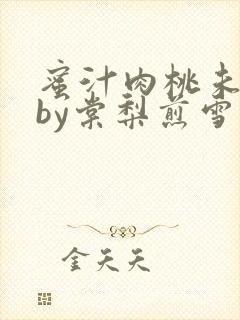 蜜汁肉桃未
by棠梨煎雪
金天天